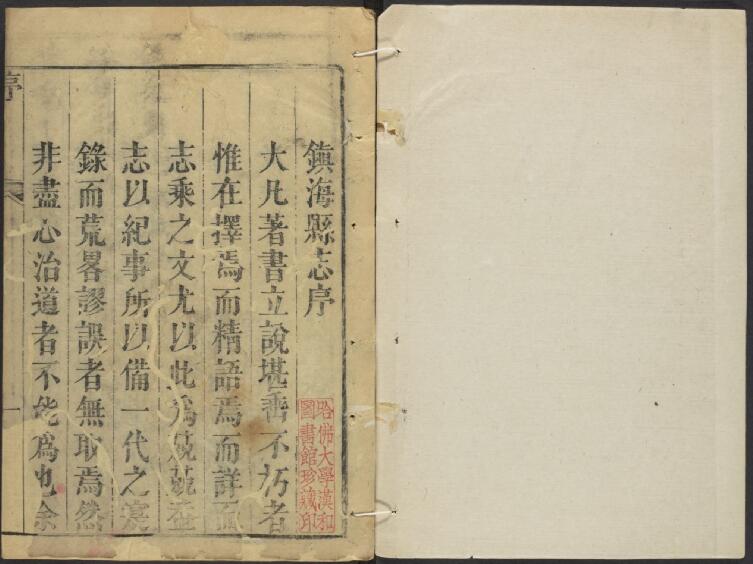 鎮海縣志序
大凡著書立說堪垂不朽者
惟在擇焉而精語焉而詳而
志乘之文尤以此為兢兢葢
志以紀事所以備一代之實
錄而荒畧謬誤者無取焉然
非盡心治道者不能為也余
序
一
哈佛大學漢和
圖書館珍藏印